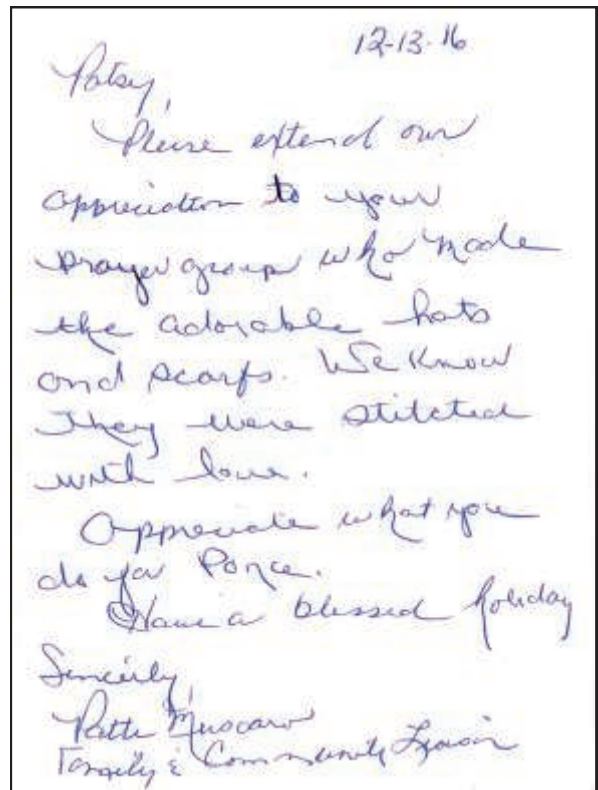 12-13-16
Patsy,
Please extend our
appreciation to your
prayer group who made
the adorable hats
and scarfs. We know
they were stitched
with love.
Appreciate what you
do for Ponce.
Have a blessed holiday
Sincerely,
Patti
Family & Community Liaison